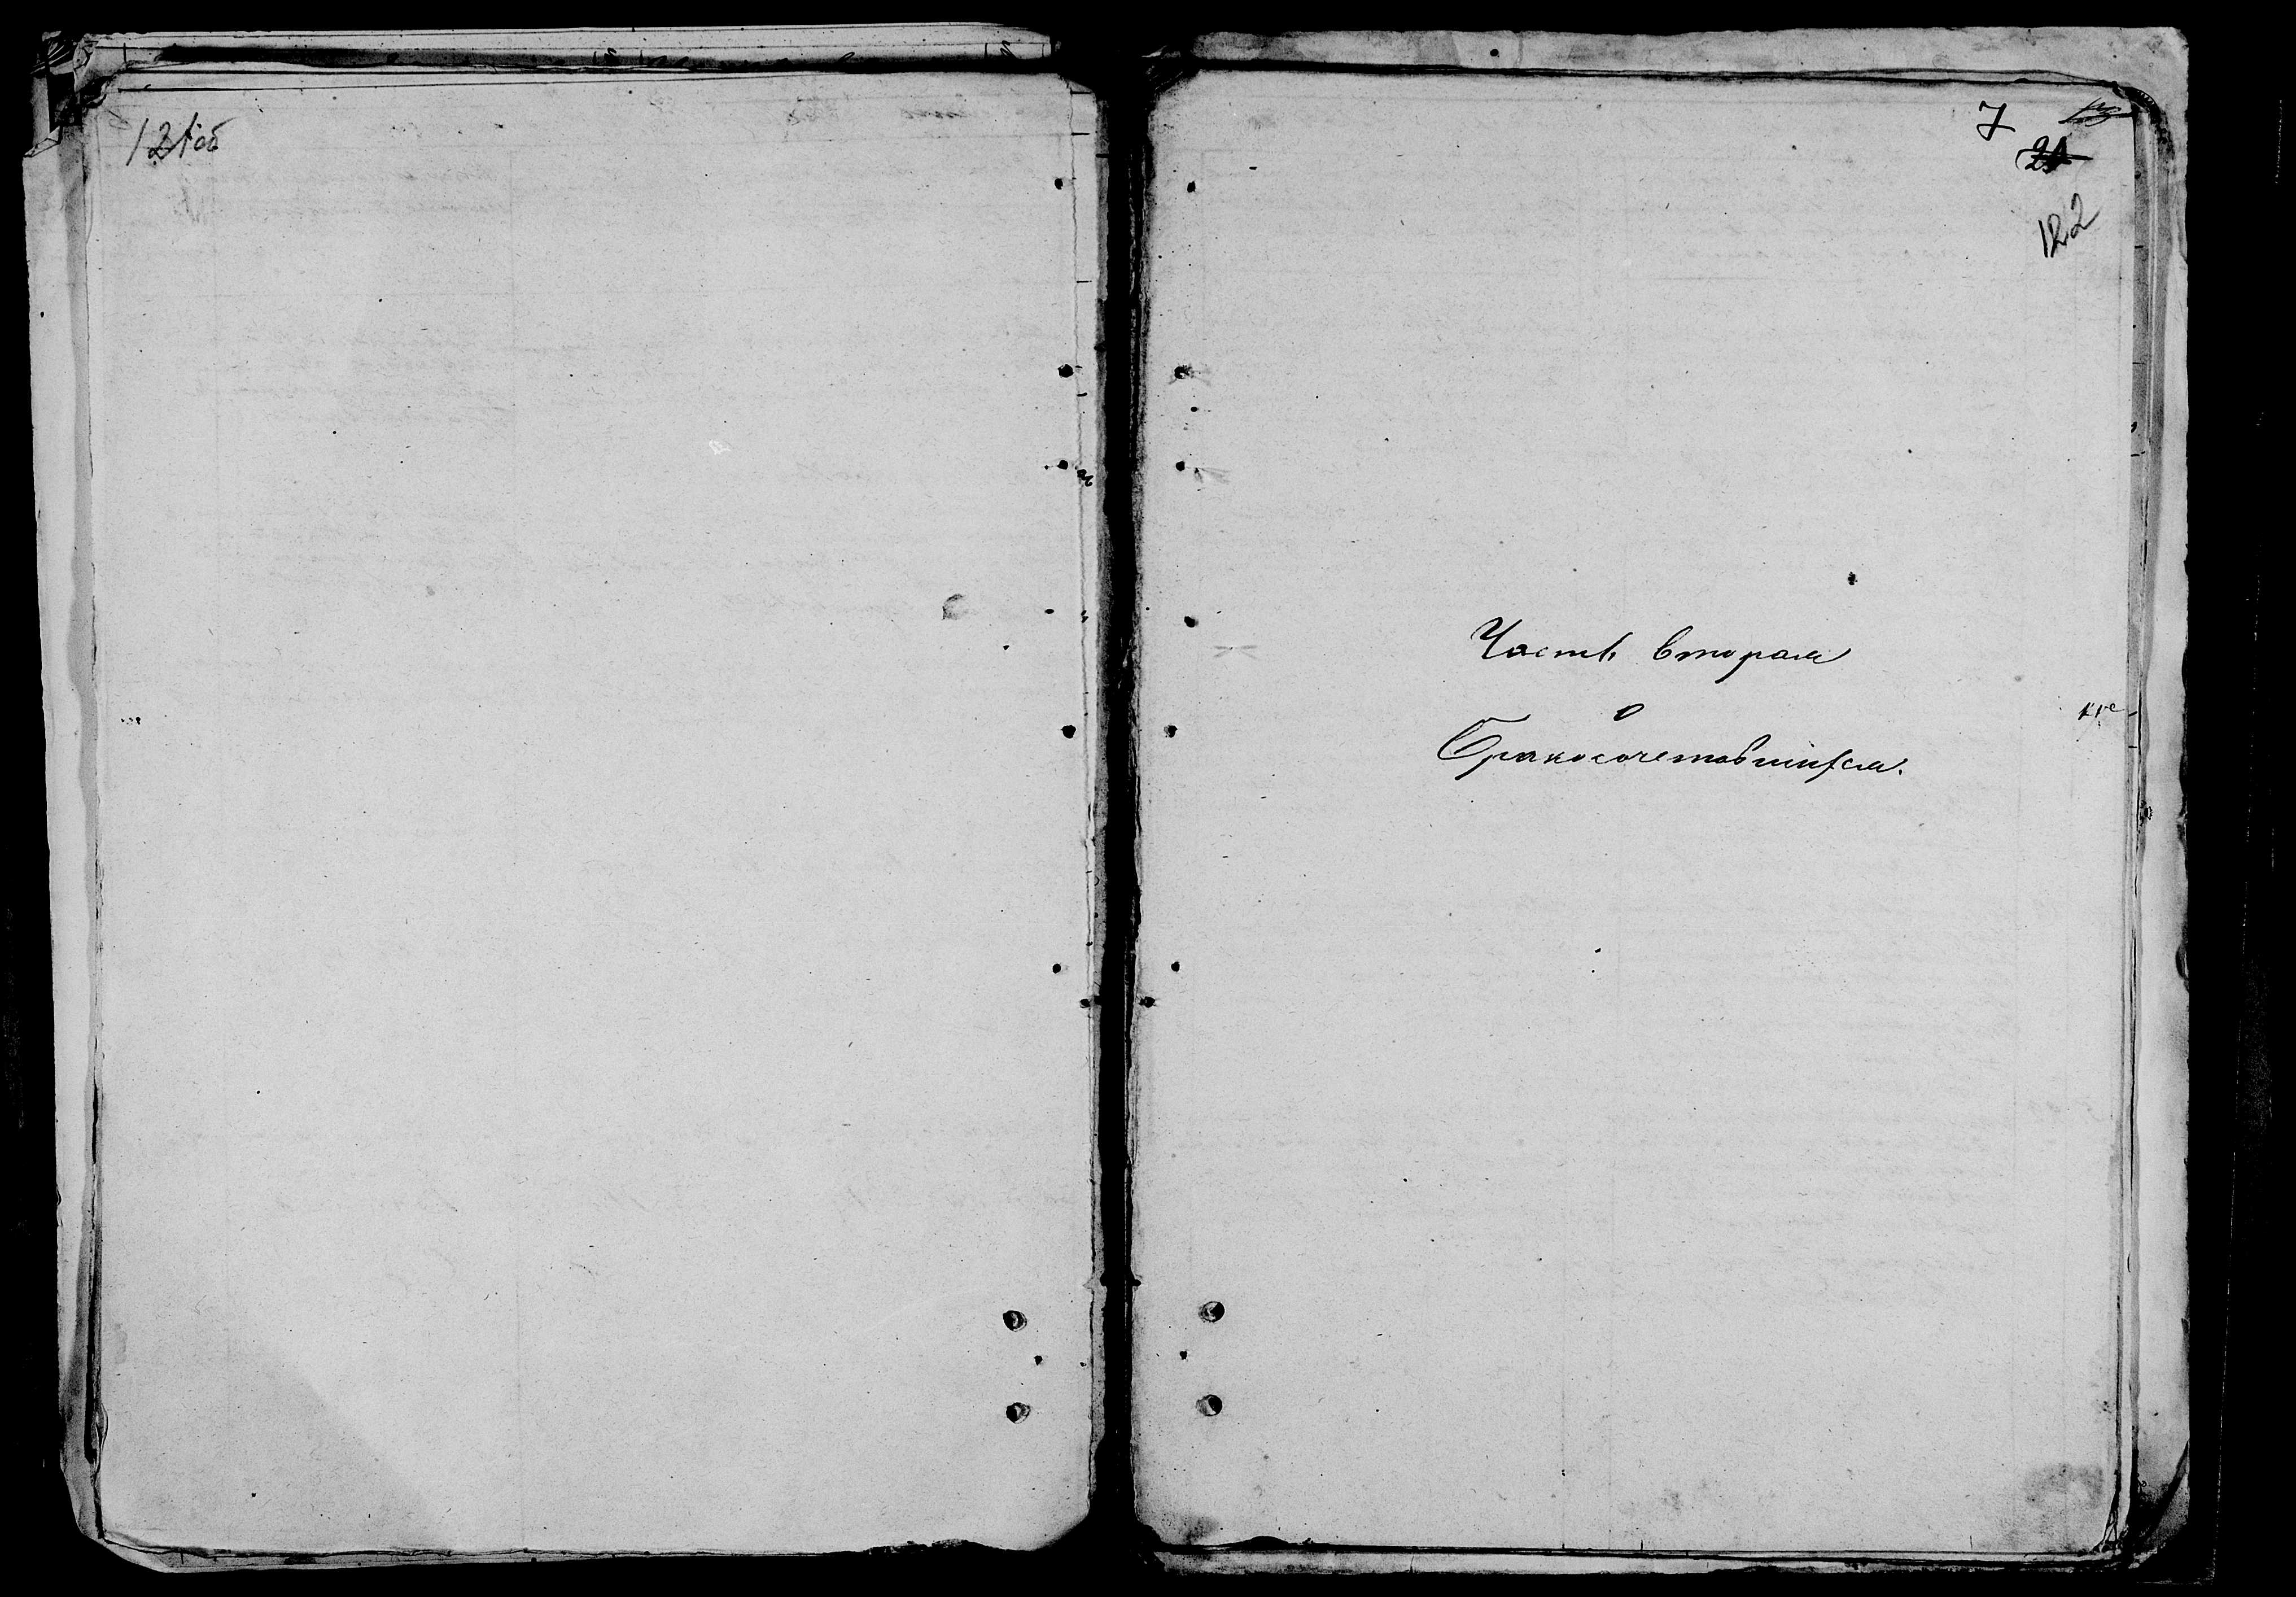 121об
7
122
Часть вторая
о
бракосочетавшихся.